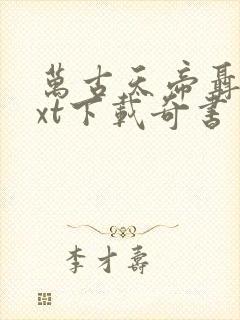 萬古天帝聶
xt下載奇書
李才壽